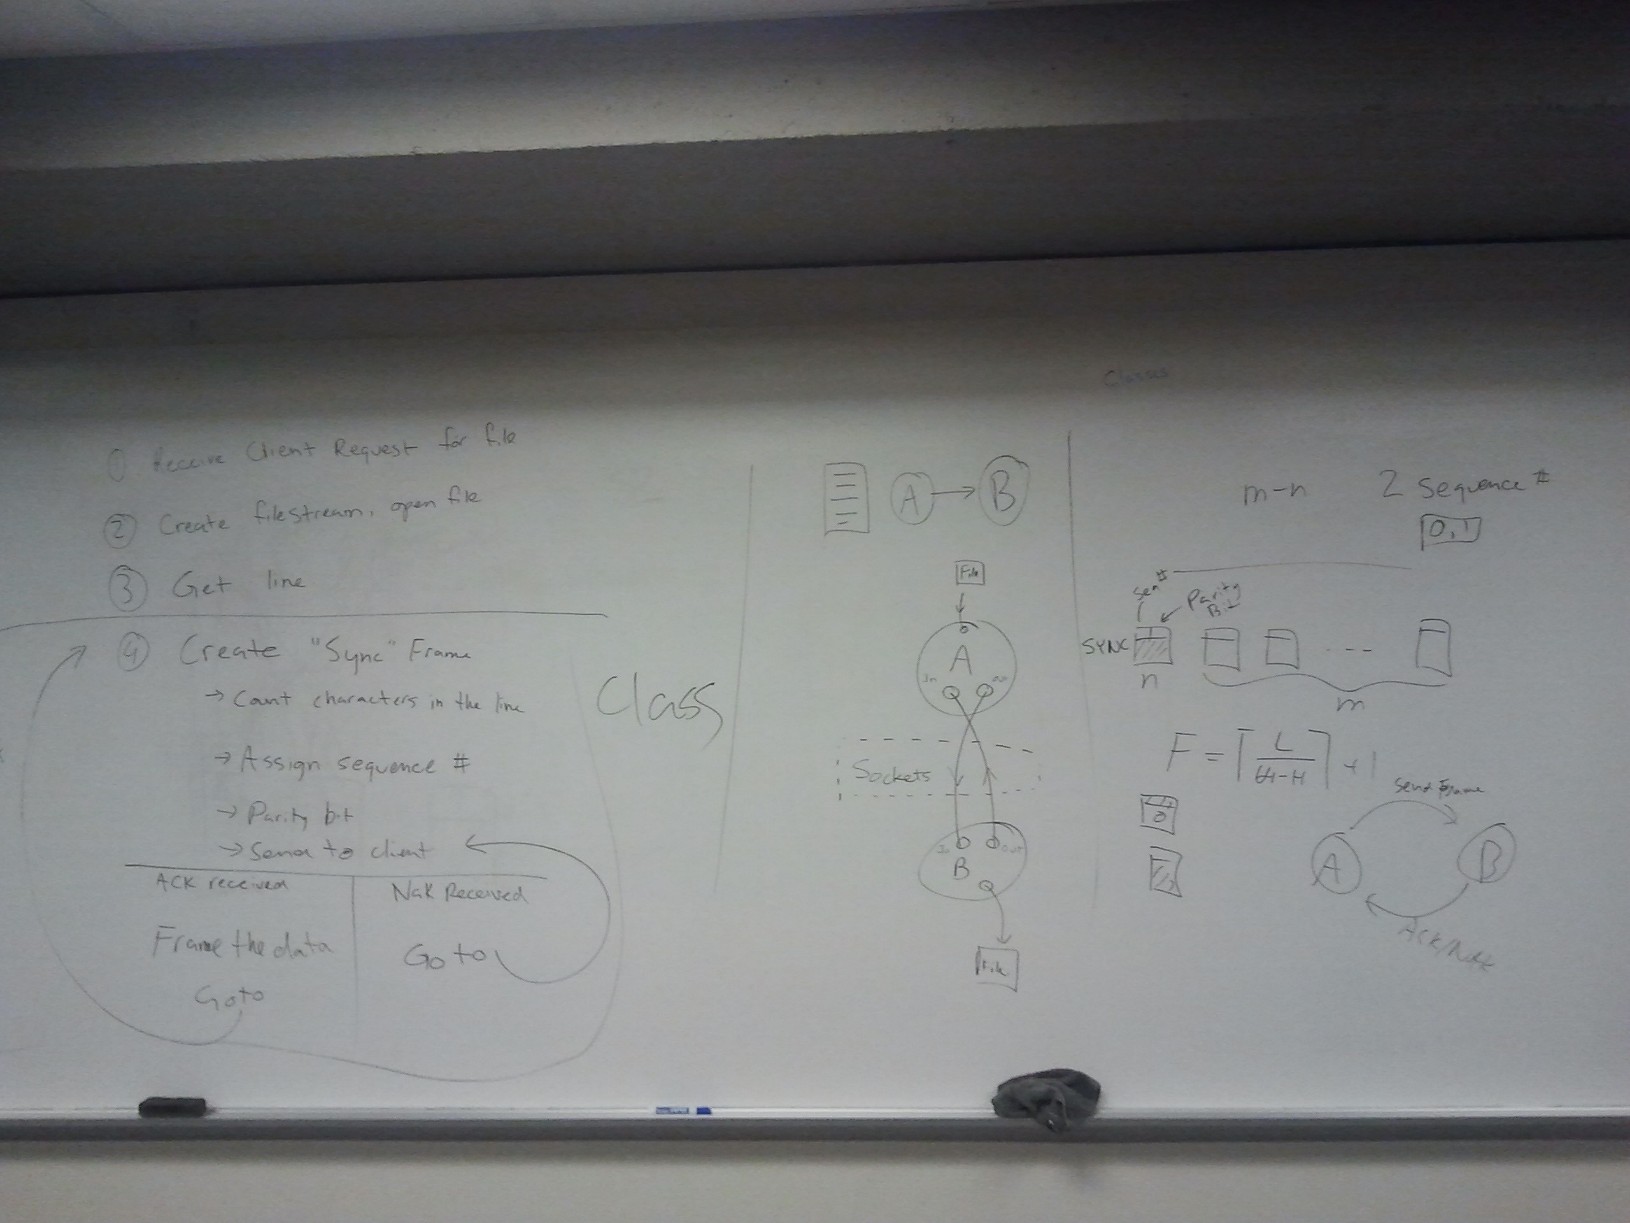 ① Receive Client Request for file
② Create filestream, open file
③ Get line
④ Create "Sync" Frame
→ Count characters in the line
→ Assign sequence #
→ Parity bit
→ Send to client
ACK received
Frame the data
Goto
Nak Received
Go to
Class
A → B
File
A
In
out
Sockets
In
out
B
File
Classes
m-n
2 sequence #
0, 1
Parity
Bit
SYNC
- - -
n
m
F = ⌈L / -H⌉ + 1
0
Send Frame
A
B